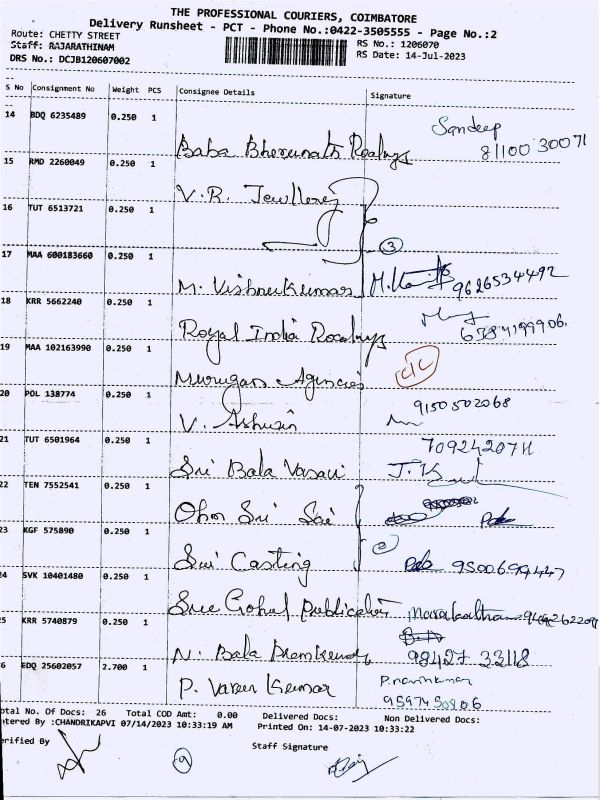 THE PROFESSIONAL COURIERS, COIMBATORE
Delivery Runsheet - PCT - Phone No.:0422-3505555 - Page No.:2
Route: CHETTY STREET
Staff: RAJARATHINAM
DRS No.: DCJB120607002
RS No.: 1206070
RS Date: 14-Jul-2023
S No Consignment No Weight PCS Consignee Details Signature
14 BDQ 6235489 0.250 1 Sandeep
Baba 81100 30071
15 RMD 2260049 0.250 1
V.R. Jewllerij
16 TUT 6513721 0.250 1
3
17 MAA 600183660 0.250 1
M. Vishnukumar 9626534492
18 KRR 5662240 0.250 1
Royal India
19 MAA 102163990 0.250 1
Murugan Agencies
20 POL 138774 0.250 1 9150502068
V. Ashwin
21 TUT 6501964 0.250 1 7092420711
Sri Bala Vasavi
22 TEN 7552541 0.250 1
Ohm Sri Sai
23 KGF 575890 0.250 1 2
Sri Casting 9500699447
24 SVK 10401480 0.250 1
Sree Gokul
25 KRR 5740879 0.250 1
N. Bala 98427 33118
26 EDQ 25602057 2.700 1
P. Varun Kumar 9597450806
otal No. Of Docs: 26 Total COD Amt: 0.00 Delivered Docs: Non Delivered Docs:
ntered By :CHANDRIKAPVI 07/14/2023 10:33:19 AM Printed On: 14-07-2023 10:33:22
erified By Staff Signature
9